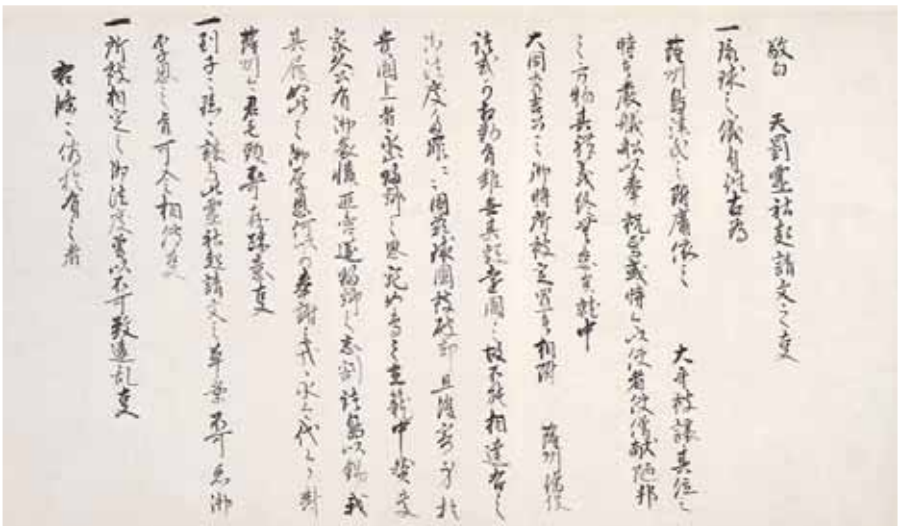 敬白 天罰霊社起請文之事
一琉球之儀自往古為
薩州島津氏之附庸依之 太守被譲其位之
時者厳艤船以奉祝焉或時々以使者使僧献陋邦
之方物其礼義終無怠矣就中
太閤秀吉公之御時所被定置者相附 薩州徭役
諸式可相勤旨雖無其疑遠国之故不能相達右之
御法度多罪々々因茲球国被破却且復寄身於
貴国上者永止帰郷之思宛如鳥之在籠中然処
家久公有御哀憐匪啻遂帰郷之志割諸島以錫我
其履如此之御厚恩何以可奉謝之哉永々代々対
薩州之君毛頭不可存疎意事
一到子々孫々譲与此霊社起請文之草案不可忘御
厚恩之旨可令相伝事
一所被相定之御法度曾以不可致違乱事
右條々偽於有之者